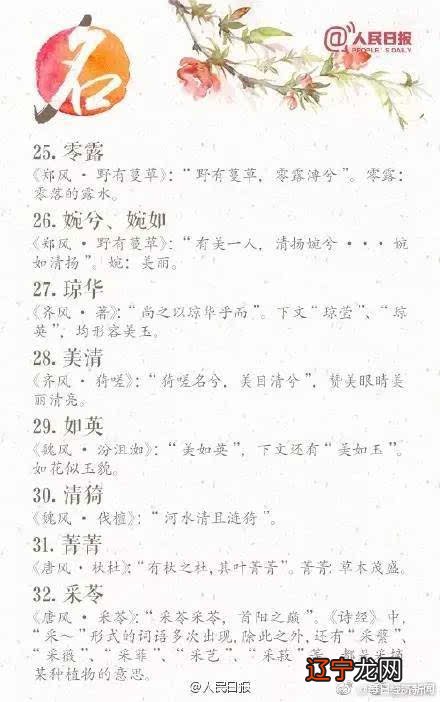 名
@人民日报
PEOPLE'S DAILY
25. 零露
《郑风·野有蔓草》：“野有蔓草，零露漙兮”。零露：
零落的露水。
26. 婉兮、婉如
《郑风·野有蔓草》：“有美一人，清扬婉兮···婉
如清扬”。婉：美丽。
27. 琼华
《齐风·著》：“尚之以琼华乎而”。下文“琼莹”、“琼
英”，均形容美玉。
28. 美清
《齐风·猗嗟》：“猗嗟名兮，美目清兮”，赞美眼睛美
丽清亮。
29. 如英
《魏风·汾沮洳》：“美如英”，下文还有“美如玉”。
如花似玉貌。
30. 清猗
《魏风·伐檀》：“河水清且涟猗”。
31. 菁菁
《唐风·杕杜》：“有杕之杜，其叶菁菁”。菁菁：草木茂盛。
32. 采苓
《唐风·采苓》：“采苓采苓，首阳之巅”。《诗经》中，
“采~”形式的词语多次出现，除此之外，还有“采蘩”、
“采薇”、“采菲”、“采艺”、“采菽”等，都是采摘
某种植物的意思。
@人民日报
辽宁龙网